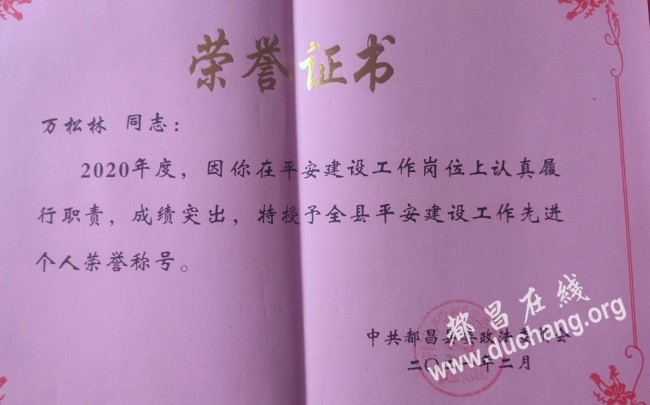 荣誉证书
万松林 同志：
2020年度，因你在平安建设工作岗位上认真履
行职责，成绩突出，特授予全县平安建设工作先进
个人荣誉称号。
都昌在线
www.duchang.org
中共都昌县委政法委员会
二〇二一年二月